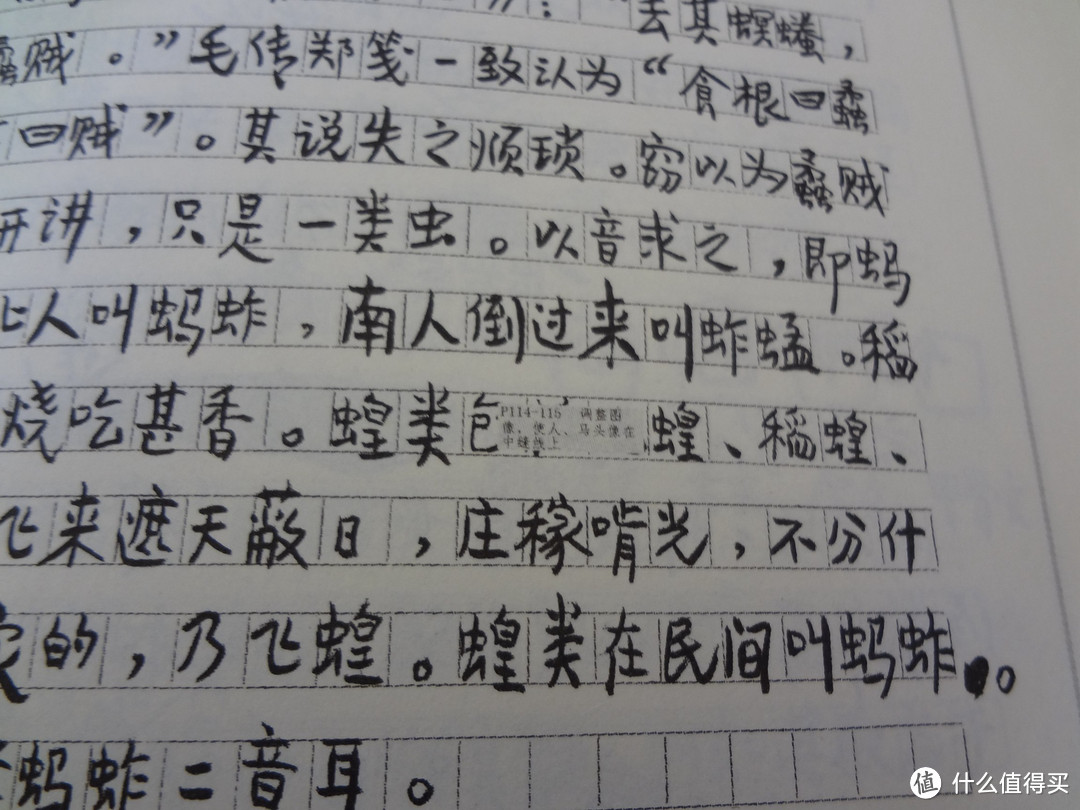 》：“去其螟螣，
蟊贼。”毛传郑笺一致认为“食根曰蟊
曰贼”。其说失之烦琐。窃以为蟊贼
开讲，只是一类虫。以音求之，即蚂
人叫蚂蚱，南人倒过来叫蚱蜢。稻
烧吃甚香。蝗类包 蝗、稻蝗、
P114-115 调整图
像，使人、马头像在
中缝线上
飞来遮天蔽日，庄稼啃光，不分什
的，乃飞蝗。蝗类在民间叫蚂蚱。
蚂蚱二音耳。
值 什么值得买